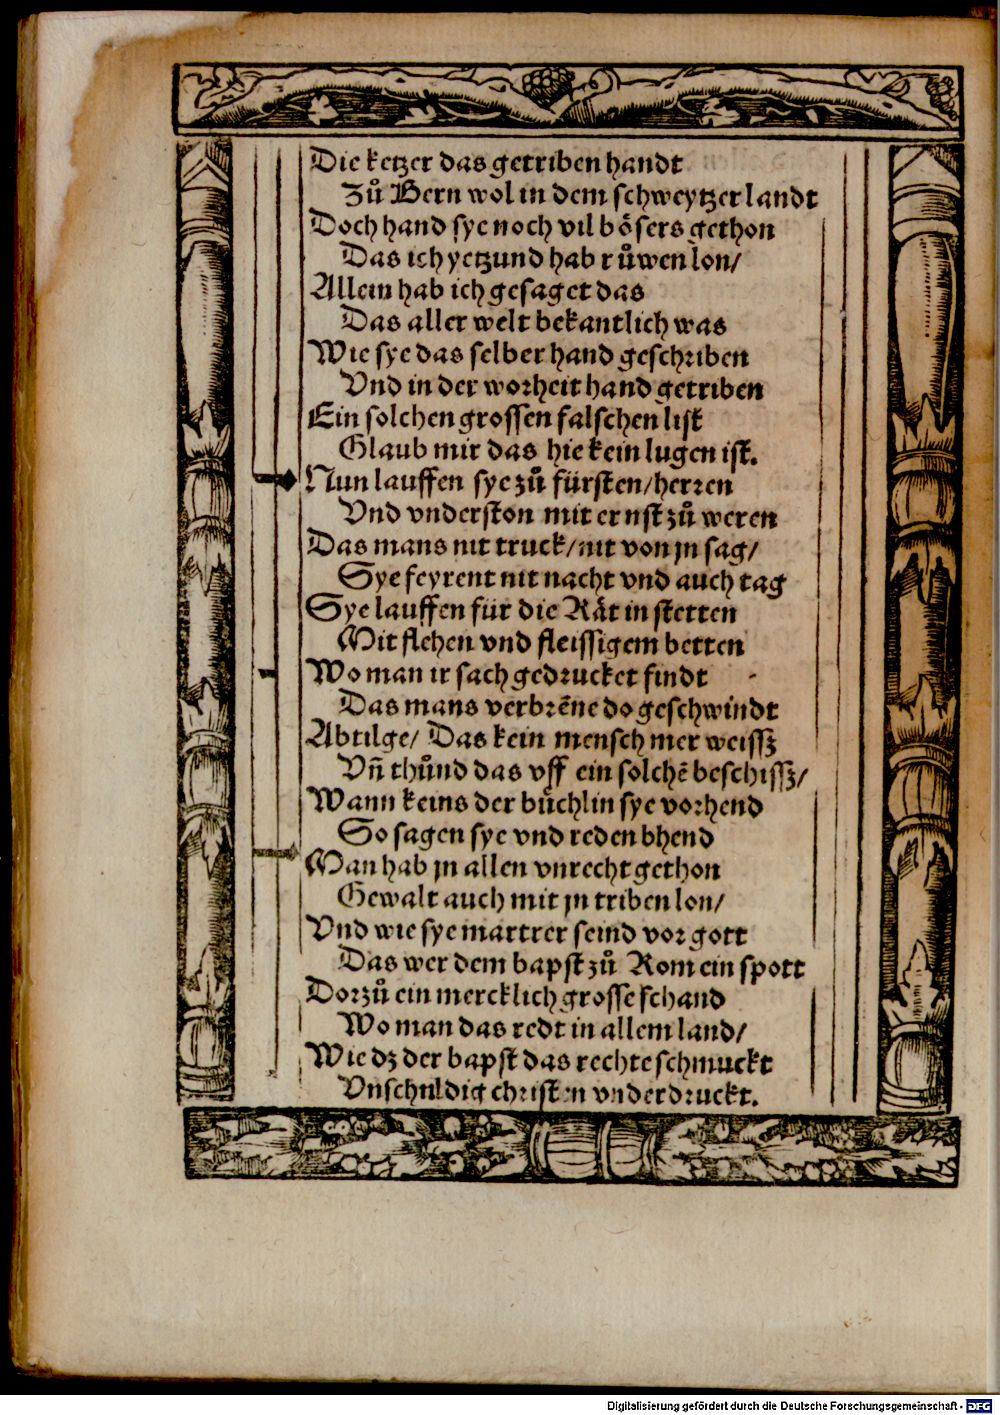 Die ketzer das getriben handt
Zuͦ Bern wol in dem schweytzer landt
Doch hand sye noch vil boͤsers gethon
Das ich yetzund hab ruͦwen lon/
Allein hab ich gesaget das
Das aller welt bekantlich was
Wie sye das selber hand geschriben
Vnd in der worheit hand getriben
Ein solchen grossen falschen list
Glaub mir das hie kein lugen ist.
Nun lauffen sye zuͦ fürsten/herren
Vnd vnderston mit ernst zuͦ weren
Das mans nit truck/nit von jn sag/
Sye feyrent nit nacht vnd auch tag
Sye lauffen für die Raͤt in stetten
Mit flehen vnd fleissigem betten
Wo man ir sach gedrucket findt
Das mans verbrẽne do geschwindt
Abtilge/ Das kein mensch mer weissz
Vñ thuͦnd das vff ein solchẽ beschissz/
Wann keins der buͤchlin sye vorhend
So sagen sye vnd reden bhend
Man hab jn allen vnrecht gethon
Gewalt auch mit jn triben lon/
Vnd wie sye martrer seind vor gott
Das wer dem bapst zuͦ Rom ein spott
Dorzuͦ ein mercklich grosse schand
Wo man das redt in allem land/
Wie dz der bapst das rechte schmuckt
Vnschuldig christen vnderdruckt.
Digitalisierung gefördert durch die Deutsche Forschungsgemeinschaft - DFG